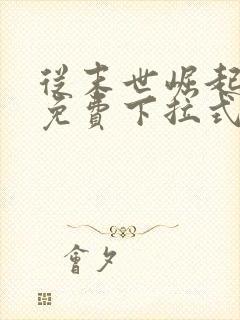 從末世崛起
免費下拉式
會夕